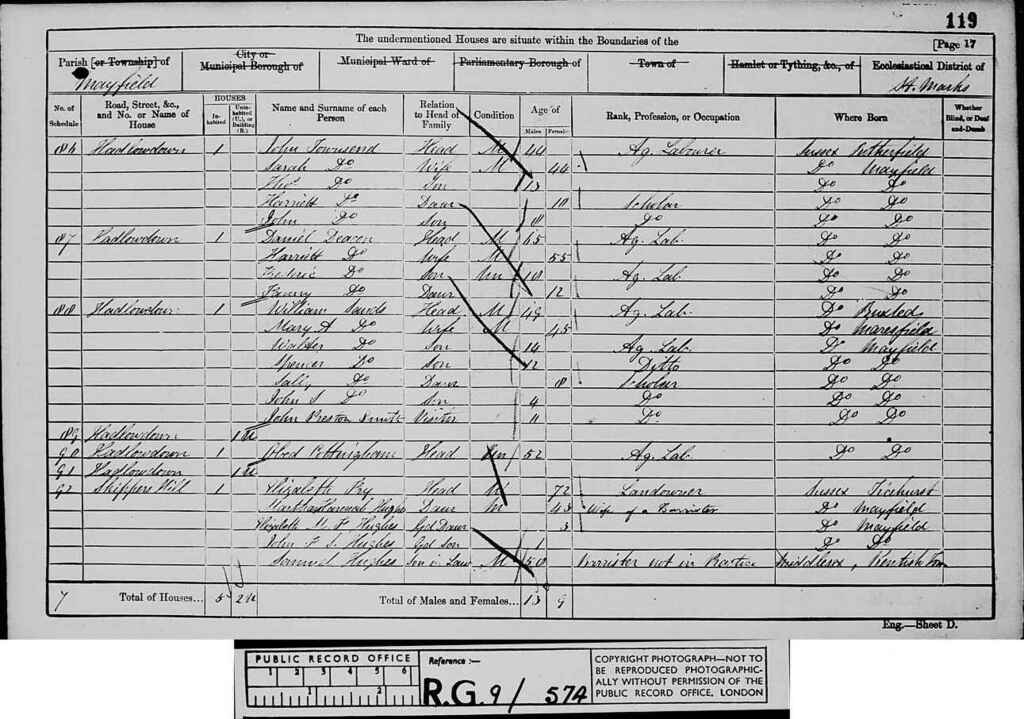 119
The undermentioned Houses are situate within the Boundaries of the
[Page 17
Parish [or Township] of
City or
Municipal Borough of
Municipal Ward of
Parliamentary Borough of
Town of
Hamlet or Tything, &c., of
Ecclesiastical District of
Mayfield
St. Marks
No. of Schedule
Road, Street, &c., and No. or Name of House
HOUSES
Inhabited
Uninhabited (U.), or Building (B.)
Name and Surname of each Person
Relation to Head of Family
Condition
Age of
Males
Females
Rank, Profession, or Occupation
Where Born
Whether Blind, or Deaf-and-Dumb
86 Hadlowdown 1 John Townsend Head M 44 Ag. Labourer Sussex Rotherfield
Sarah Do Wife M 44 Do Mayfield
Thos Do Son 13 Do Do
Harriett Do Daur 10 Scholar Do Do
John Do Son 8 Do Do Do
87 Hadlowdown 1 Daniel Deacon Head M 65 Ag. Lab. Do Do
Harriett Do Wife M 55 Do Do
Do Son Un 18 Ag. Lab. Do Do
Fanny Do Daur 12 Do Do
88 Hadlowdown 1 William Head M 49 Ag. Lab. Do Buxted
Mary A Do Wife M 45 Do Maresfield
Walter Do Son 14 Ag. Lab. Do Mayfield
Spencer Do Son 12 Ditto Do Do
Do Daur 8 Scholar Do Do
John S Do Son 4 Do Do Do
John Preston Smith Visitor 11 Do. Do Do
89 Hadlowdown 1 U
90 Hadlowdown 1 Obed Pettingham Head Un 52 Ag. Lab. Do Do
91 Hadlowdown 1 U
92 Skippers Hill 1 Elizabeth Head 72 Landowner Sussex Ticehurst
Hannah Hughes Daur M 43 Wife of a Barrister Do Mayfield
Elizabeth F Hughes Gd Daur 3 Do Mayfield
John F S Hughes Gd Son 1 Do Do
Samuel Hughes Son in Law M 50 Barrister not in Practice Middlesex, Kentish Town
7 Total of Houses... 5 2U Total of Males and Females... 13 9
Eng.—Sheet D.
PUBLIC RECORD OFFICE
1 2 3 4 5 6
1 2
Reference :—
R.G. 9/ 574
COPYRIGHT PHOTOGRAPH—NOT TO
BE REPRODUCED PHOTOGRAPHIC-
ALLY WITHOUT PERMISSION OF THE
PUBLIC RECORD OFFICE, LONDON